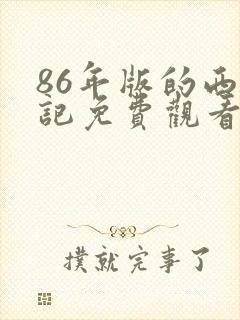 86年版的西
記免費觀看
撲就完事了